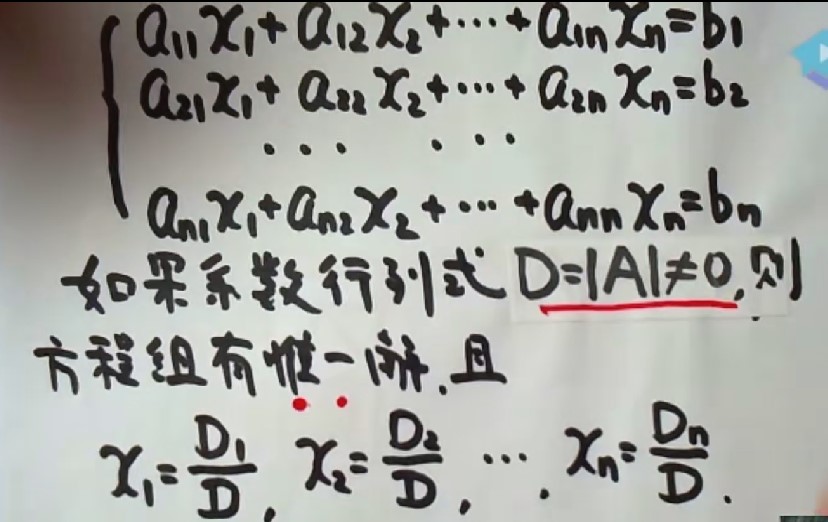 a₁₁x₁+a₁₂x₂+…+a₁ₙxₙ=b₁
a₂₁x₁+a₂₂x₂+…+a₂ₙxₙ=b₂
… …
aₙ₁x₁+aₙ₂x₂+…+aₙₙxₙ=bₙ
如果系数行列式D=|A|≠0,则
方程组有惟一解.且
x₁=D₁/D, x₂=D₂/D, …, xₙ=Dₙ/D.